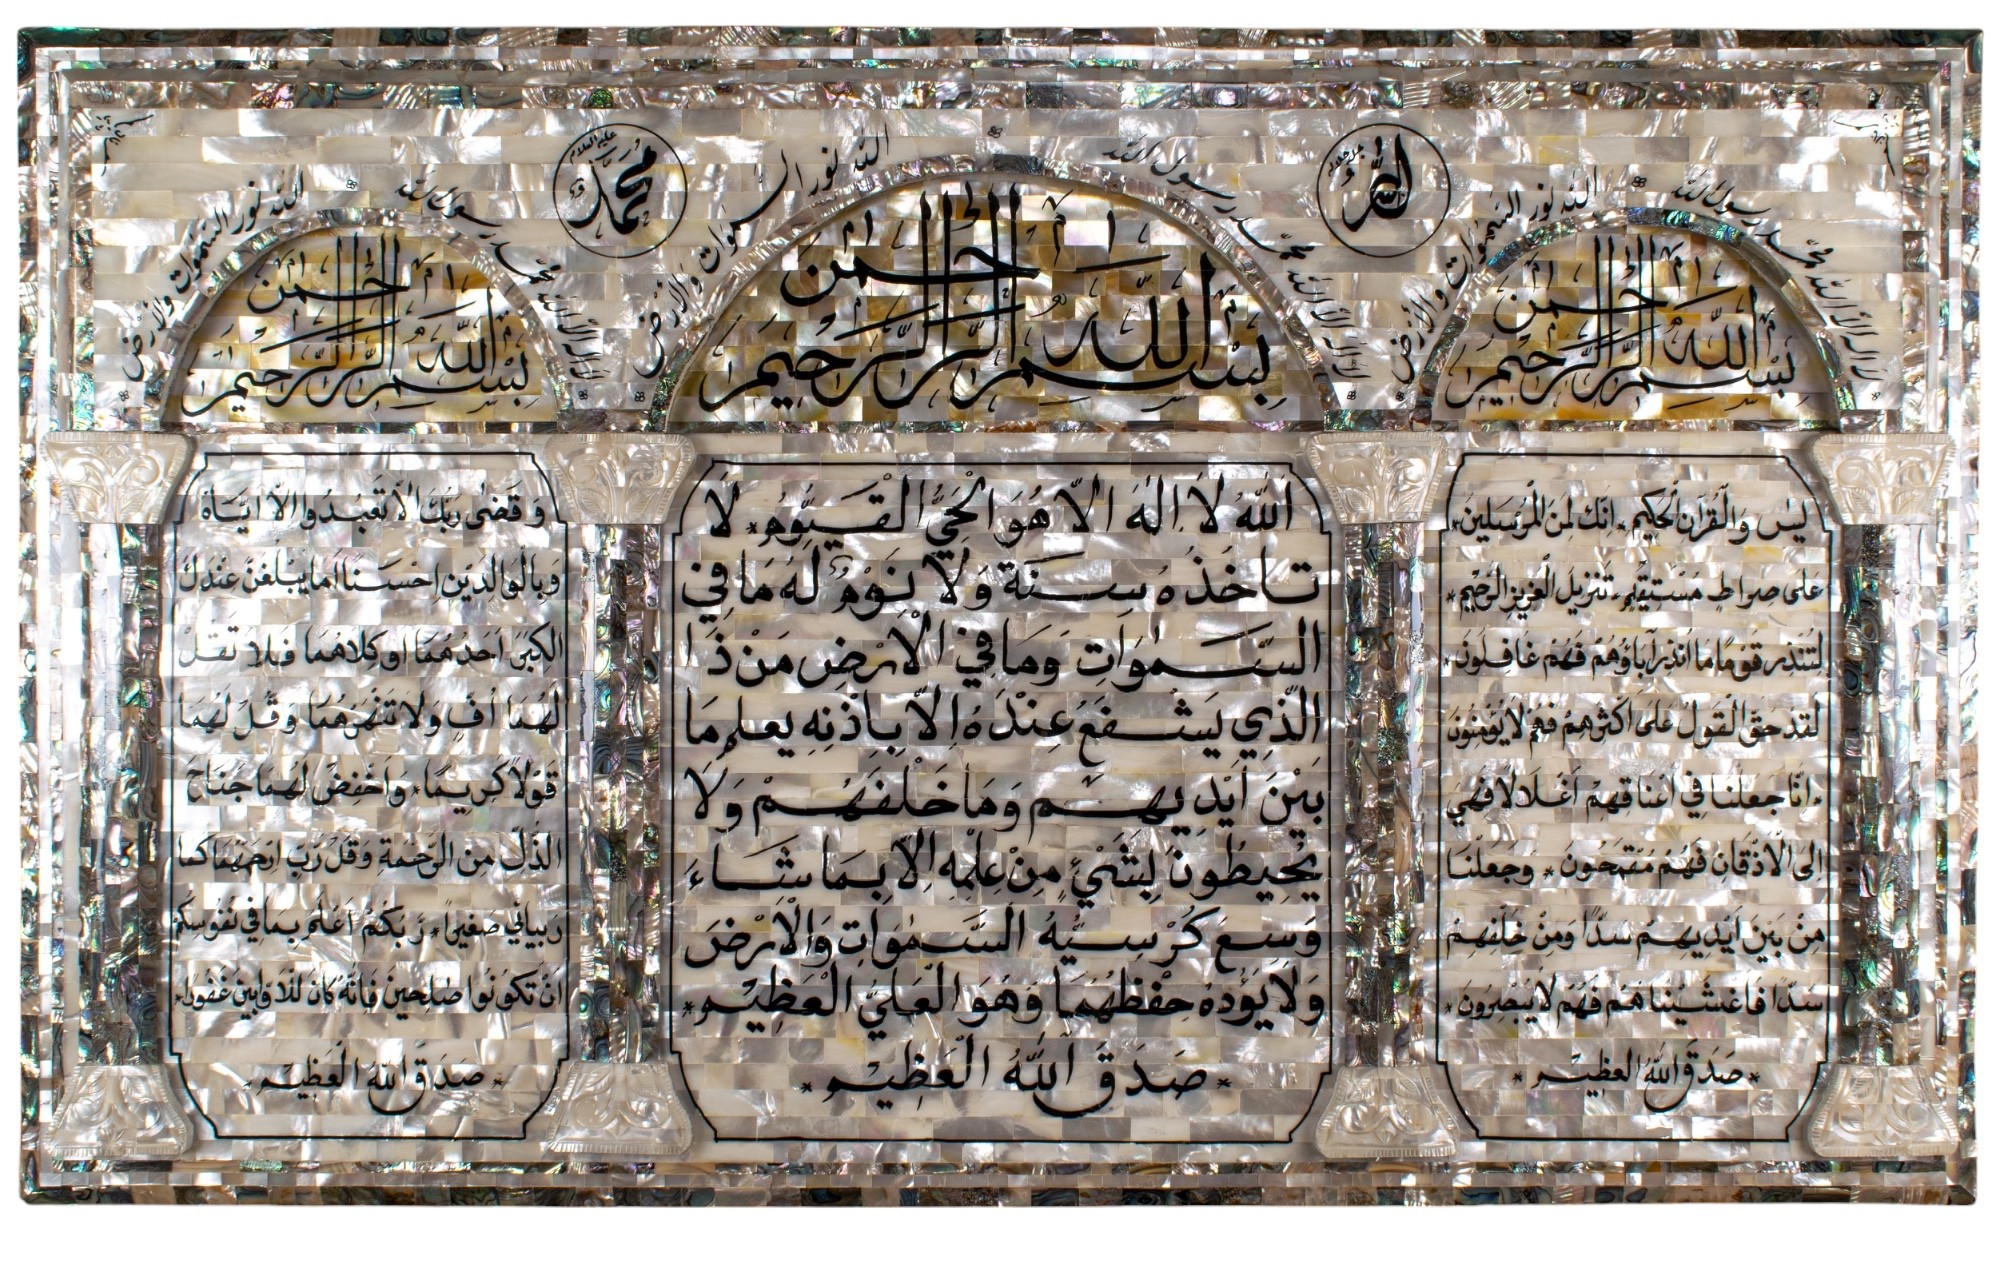 الله جل جلاله
محمد عليه السلام
لا إله إلا الله محمد رسول الله
الله نور السموات والأرض
لا إله إلا الله محمد رسول الله
الله نور السموات والأرض
لا إله إلا الله محمد رسول الله
الله نور السموات والأرض
بسم الله الرحمن الرحيم
يس والقرآن الحكيم * انك لمن المرسلين *
على صراط مستقيم * تنزيل العزيز الرحيم *
لتنذر قوما ما انذر آباؤهم فهم غافلون *
لقد حق القول على اكثرهم فهم لا يؤمنون
* انا جعلنا في اعناقهم اغلالا فهي
الى الاذقان فهم مقمحون * وجعلنا
من بين ايديهم سدا ومن خلفهم
سدا فاغشيناهم فهم لا يبصرون *
* صدق الله العظيم *
بسم الله الرحمن الرحيم
الله لا اله الا هو الحي القيوم * لا
تاخذه سنة ولا نوم له ما في
السموات وما في الارض من ذا
الذي يشفع عنده الا باذنه يعلم ما
بين ايديهم وما خلفهم ولا
يحيطون بشيء من علمه الا بما شاء
وسع كرسيه السموات والارض
ولا يؤده حفظهما وهو العلي العظيم *
* صدق الله العظيم *
بسم الله الرحمن الرحيم
وقضى ربك الا تعبدوا الا اياه
وبالوالدين احسنا اما يبلغن عندك
الكبر احدهما او كلاهما فلا تقل
لهما اف ولا تنهرهما وقل لهما
قولا كريما * واخفض لهما جناح
الذل من الرحمة وقل رب ارحمهما كما
ربياني صغيرا * ربكم اعلم بما في نفوسكم
ان تكونوا صلحين فانه كان للاوابين غفورا *
* صدق الله العظيم *